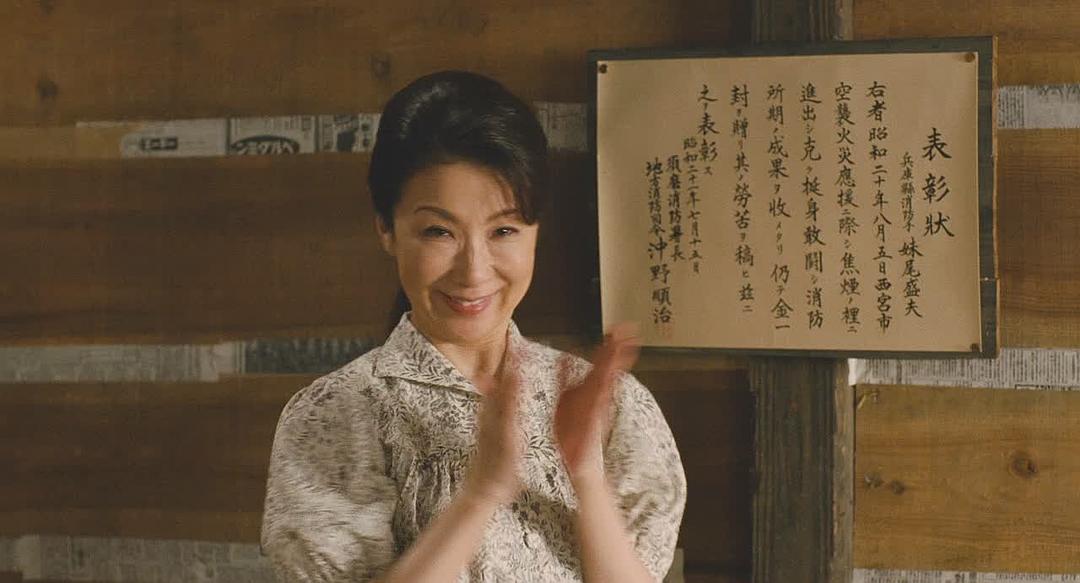 表彰狀
兵庫縣消防手 妹尾盛夫
右者昭和二十年八月五日西宮市
空襲火災應援ニ際シ焦煙ノ裡ニ
進出シ克ク挺身敢闘シ消防
所期ノ成果ヲ收メタリ仍テ金一
封ヲ贈リ其ノ勞苦ヲ稿ヒ茲ニ
之ヲ表彰ス
昭和二十一年七月十五日
須磨消防署長
地方消防司令 沖野順治